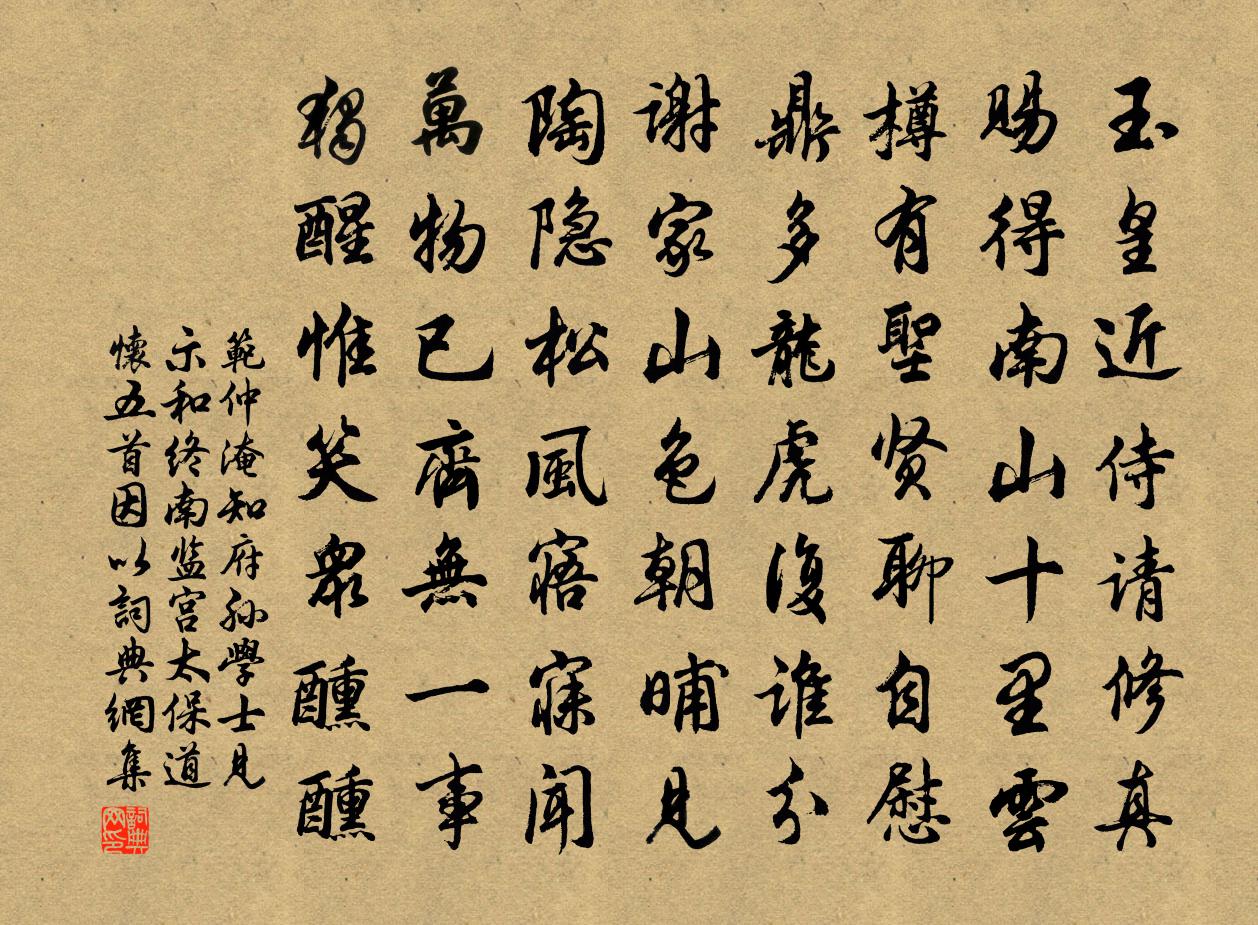 玉皇近侍请修真
赐得南山十里雲
樽有聖贤聊自慰
鼎多龍虎復谁分
谢家山色朝晡見
陶隐松風寤寐闻
萬物已齊無一事
獨醒惟笑衆醺醺
範仲淹知府孙學士見
示和终南监宫太保道
懷五首因以詞典網集
詞典网印